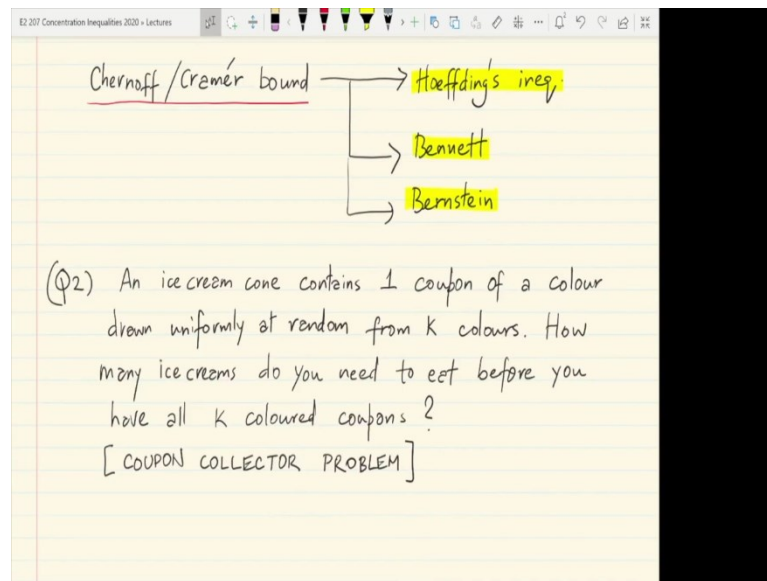 E2 207 Concentration Inequalities 2020 » Lectures
Chernoff/Cramér bound → Hoeffding's ineq.
→ Bennett
→ Bernstein
(Q2) An ice cream cone contains 1 coupon of a colour
drawn uniformly at random from K colours. How
many ice creams do you need to eat before you
have all K coloured coupons?
[COUPON COLLECTOR PROBLEM]